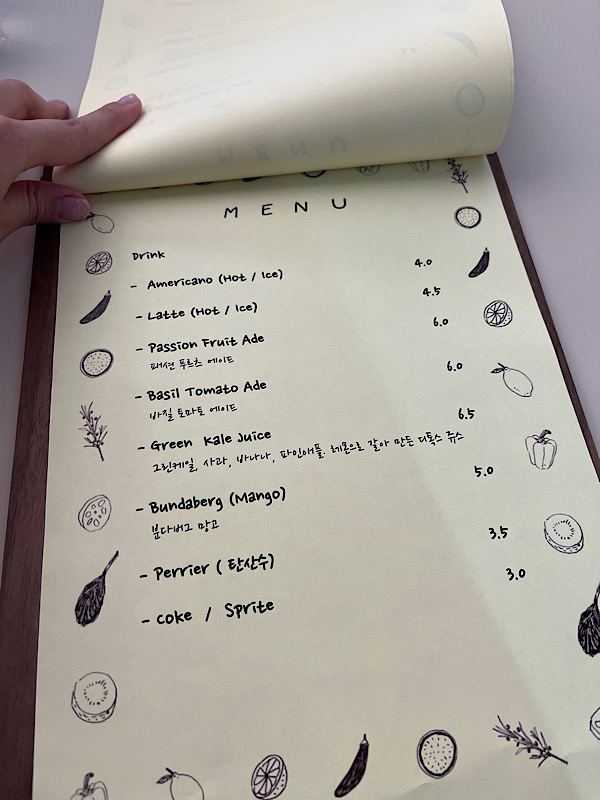 MENU
Drink
- Americano (Hot / Ice) 4.0
- Latte (Hot / Ice) 4.5
- Passion Fruit Ade 6.0
패션 푸르츠 에이드
- Basil Tomato Ade 6.0
바질 토마토 에이드
- Green Kale Juice 6.5
그린케일, 사과, 바나나, 파인애플, 레몬으로 갈아 만든 디톡스 쥬스
- Bundaberg (Mango) 5.0
분다버그 망고
- Perrier (탄산수) 3.5
- coke / Sprite 3.0